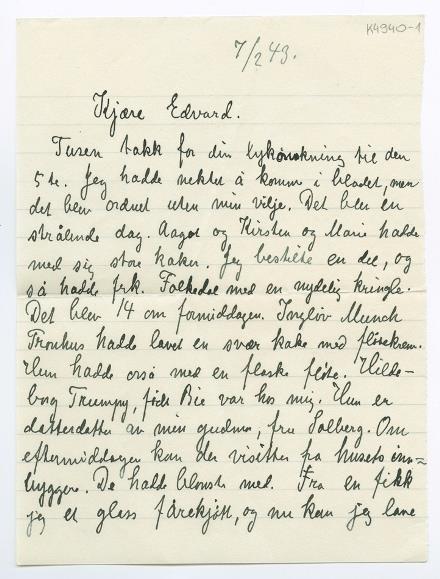 K4940-1
7/2 43.
Kjære Edvard.
Tusen takk for din lykønskning til den
5te. Jeg hadde nektet å komm i bladet, men
det blev ordnet uten min vilje. Det blev en
strålende dag. Aagot og Kirsten og Marie hadde
med sig store kaker. Jeg bestilte en del, og
så hadde frk. Folkedal med en nydelig kringle.
Det blev 14 om formiddagen. Ingløv Munch
Tronhus hadde lavet en svær kake med fløtekrem.
Hun hadde også med en flaske fløte. Hilde-
borg Trumpy, født Bie var hos mig. Hun er
datterdatter av min gudmor, fru Solberg. Om
eftermiddagen kom der visitter fra husets inn=
byggere. De hadde blomster med. Fra en fikk
jeg et glass fårekjøtt, og nu kan jeg lave